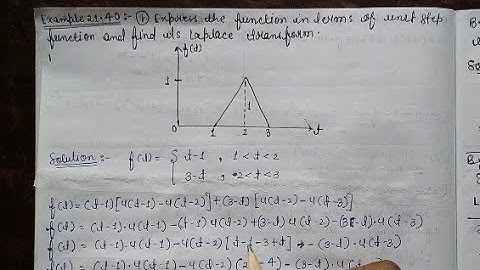 Example 21.40:- ① Express the function in terms of unit step
function and find its Laplace transform.
f(t)
1
1
0 1 2 3 t
Solution:- f(t) = { t-1 , 1<t<2
3-t , 2<t<3
f(t) = (t-1)[u(t-1)-u(t-2)]+(3-t)[u(t-2)-u(t-3)]
f(t) = (t-1).u(t-1)-(t-1)u(t-2)+(3-t)u(t-2)-(3-t).u(t-3)
f(t) = (t-1).u(t-1)-u(t-2)[t-1-3+t] - (3-t).u(t-3)
f(t) = (t-1).u(t-1)-u(t-2)(2 -4)-(3-t).u(t-